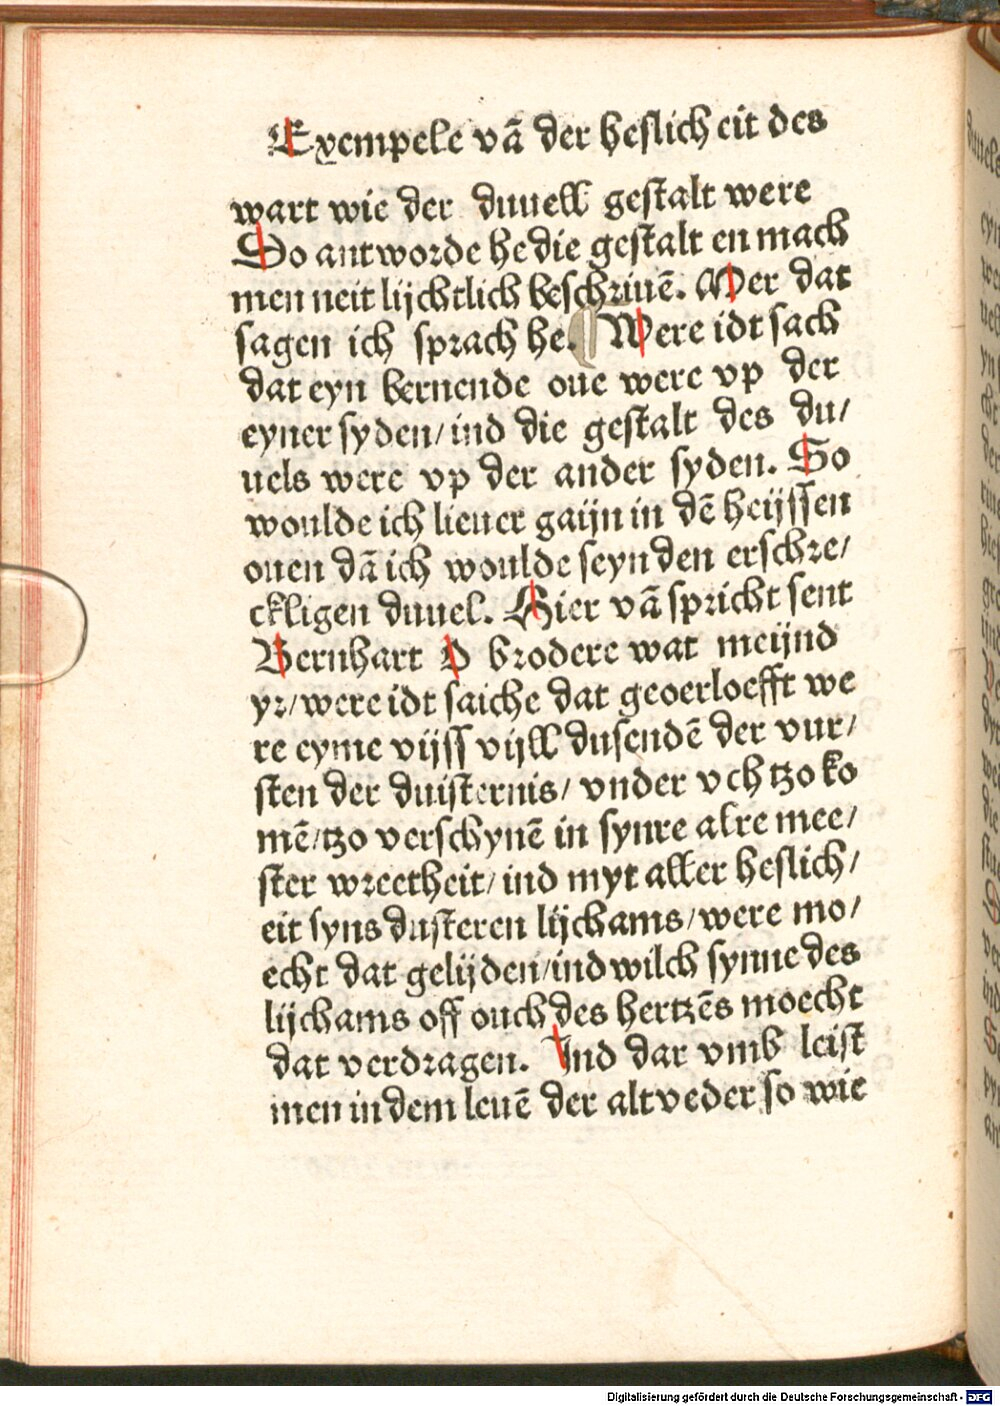 Exempele vā der heslich eit des
wart wie der duuell gestalt were
So antworde he die gestalt en mach
men neit lijchtlich beschriuē. Mer dat
sagen ich sprach he. ¶ Were idt sach
dat eyn bernende oue were vp der
eyner syden/ ind die gestalt des du/
uels were vp der ander syden. So
woulde ich lieuer gaijn in dē heijssen
ouen dā ich woulde seyn den erschre/
ckligen duuel. Hier vā spricht sent
Bernhart O brodere wat meijnd
yr/ were idt saiche dat geoerloefft we
re eyme vijss vijll dusendē der vur/
sten der duisternis/ vnder vch tzo ko
mē/ tzo verschynē in synre alre mee/
ster wreetheit/ ind myt aller heslich/
eit syns dusteren lijchams/ were mo/
echt dat gelijden/ ind wilch synne des
lijchams off ouch des hertzēs moecht
dat verdragen. Ind dar vmb leist
men in dem leuē der altveder so wie
Digitalisierung gefördert durch die Deutsche Forschungsgemeinschaft - DFG